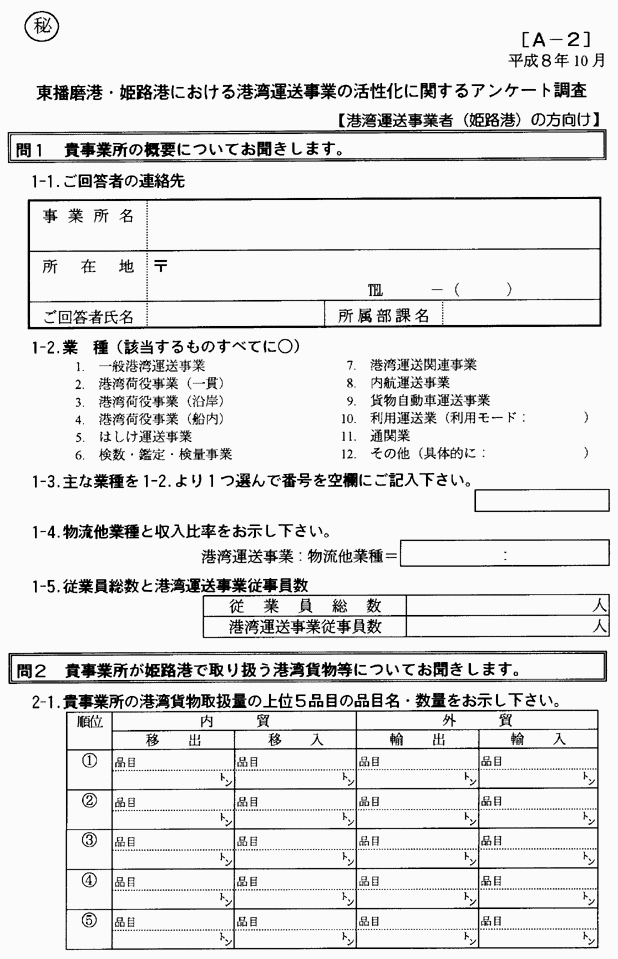 秘
[A－2]
平成8年10月
東播磨港・姫路港における港湾運送事業の活性化に関するアンケート調査
【港湾運送事業者（姫路港）の方向け】
問1　貴事業所の概要についてお聞きします。
1-1.ご回答者の連絡先
事業所名
所在地 〒
℡　－（　）
ご回答者氏名　所属部課名
1-2.業　種（該当するものすべてに○）
1. 一般港湾運送事業
2. 港湾荷役事業（一貫）
3. 港湾荷役事業（沿岸）
4. 港湾荷役事業（船内）
5. はしけ運送事業
6. 検数・鑑定・検量事業
7. 港湾運送関連事業
8. 内航運送事業
9. 貨物自動車運送事業
10. 利用運送業（利用モード：　）
11. 通関業
12. その他（具体的に：　）
1-3.主な業種を1-2.より1つ選んで番号を空欄にご記入下さい。
1-4.物流他業種と収入比率をお示し下さい。
港湾運送事業：物流他業種＝　：
1-5.従業員総数と港湾運送事業従事員数
従業員総数　人
港湾運送事業従事員数　人
問2　貴事業所が姫路港で取り扱う港湾貨物等についてお聞きします。
2-1.貴事業所の港湾貨物取扱量の上位5品目の品目名・数量をお示し下さい。
順位　内貿　外貿
移出　移入　輸出　輸入
① 品目 品目 品目 品目
トン トン トン トン
② 品目 品目 品目 品目
トン トン トン トン
③ 品目 品目 品目 品目
トン トン トン トン
④ 品目 品目 品目 品目
トン トン トン トン
⑤ 品目 品目 品目 品目
トン トン トン トン